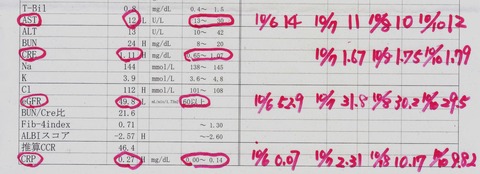 T-Bil 0.8 mg/dL 0.4~ 1.5
AST 12 L U/L 13~ 30 10/6 14 10/7 11 10/8 10 10/10 12
ALT 13 U/L 10~ 42
BUN 24 H mg/dL 8~ 20
CRE 1.11 H mg/dL 0.65~ 1.07 10/7 1.67 10/8 1.75 10/10 1.79
Na 144 mmol/L 138~ 145
K 3.9 mmol/L 3.6~ 4.8
Cl 112 H mmol/L 101~ 108
eGFR 49.8 L 60以上 10/6 52.9 10/7 31.8 10/8 30.2 10/10 29.5
BUN/Cre比 21.6
Fib-4index 0.71 ~ 1.30
ALBIスコア -2.57 H ~-2.60
推算CCR 46.4
CRP 0.27 H mg/dL 0.00~ 0.14 10/6 0.07 10/7 2.31 10/8 10.17 10/10 9.82